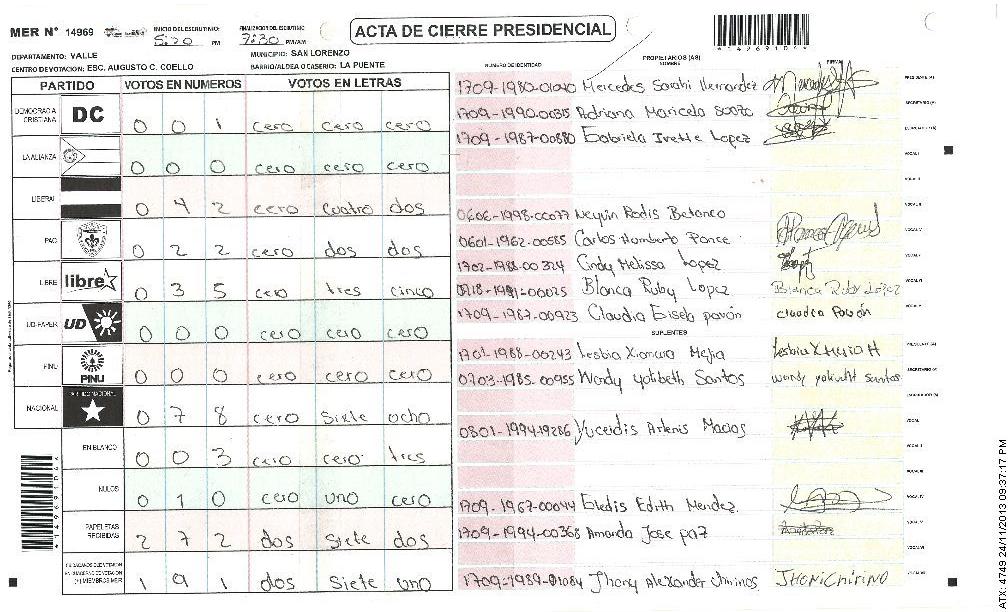 MER N° 14969 INICIO DEL ESCRUTINIO: 5:20 PM FINALIZACION DEL ESCRUTINIO: 7:30 PM/AM
ACTA DE CIERRE PRESIDENCIAL
DEPARTAMENTO: VALLE MUNICIPIO: SAN LORENZO
CENTRO DE VOTACION: ESC. AUGUSTO C. COELLO BARRIO/ALDEA O CASERIO: LA PUENTE
PARTIDO VOTOS EN NUMEROS VOTOS EN LETRAS
DEMOCRACIA CRISTIANA DC 0 0 1 cero cero cero
LA ALIANZA 0 0 0 cero cero cero
LIBERAL 0 4 2 cero cuatro dos
PAC 0 2 2 cero dos dos
LIBRE libre 0 3 5 cero tres cinco
UD-FAPER UD 0 0 0 cero cero cero
PINU PINU 0 0 0 cero cero cero
NACIONAL PARTIDO NACIONAL 0 7 8 cero siete ocho
EN BLANCO 0 0 3 cero cero tres
NULOS 0 1 0 cero uno cero
PAPELETAS RECIBIDAS 2 7 2 dos siete dos
(+) MIEMBROS MER 1 9 1 dos siete uno
NUMERO DE IDENTIDAD PROPIETARIOS (AS) NOMBRE FIRMA
1709-1980-01040 Mercedes Sarahi Hernandez PRESIDENTE (A)
1709-1990-00315 Adriana Maricela SECRETARIO (A)
1709-1987-00880 Gabriela Ivette Lopez
VOCAL I
VOCAL II
0606-1998-00077 VOCAL III
0601-1962-00585 Carlos Humberto Ponce VOCAL IV
1702-1988-00324 Cindy Melissa Lopez VOCAL V
Blanca Ruby Lopez Blanca Ruby López VOCAL VI
1709-1987-00923 Claudia claudia Pavón
SUPLENTES
1701-1988-00243 Lesbia Xiomara Mejia PRESIDENTE (A)
0703-1985-00955 Wendy Santos SECRETARIO (A)
0801-1994-19286 VOCAL I
VOCAL II
VOCAL III
1709-1967-00044 Eledis Edith Mendez VOCAL IV
1709-1994-00368 Amanda Jose paz VOCAL V
VOCAL VI
1709-1989-01084 Jhony Alexander
ATX: 4749 24/11/2013 09:37:17 PM